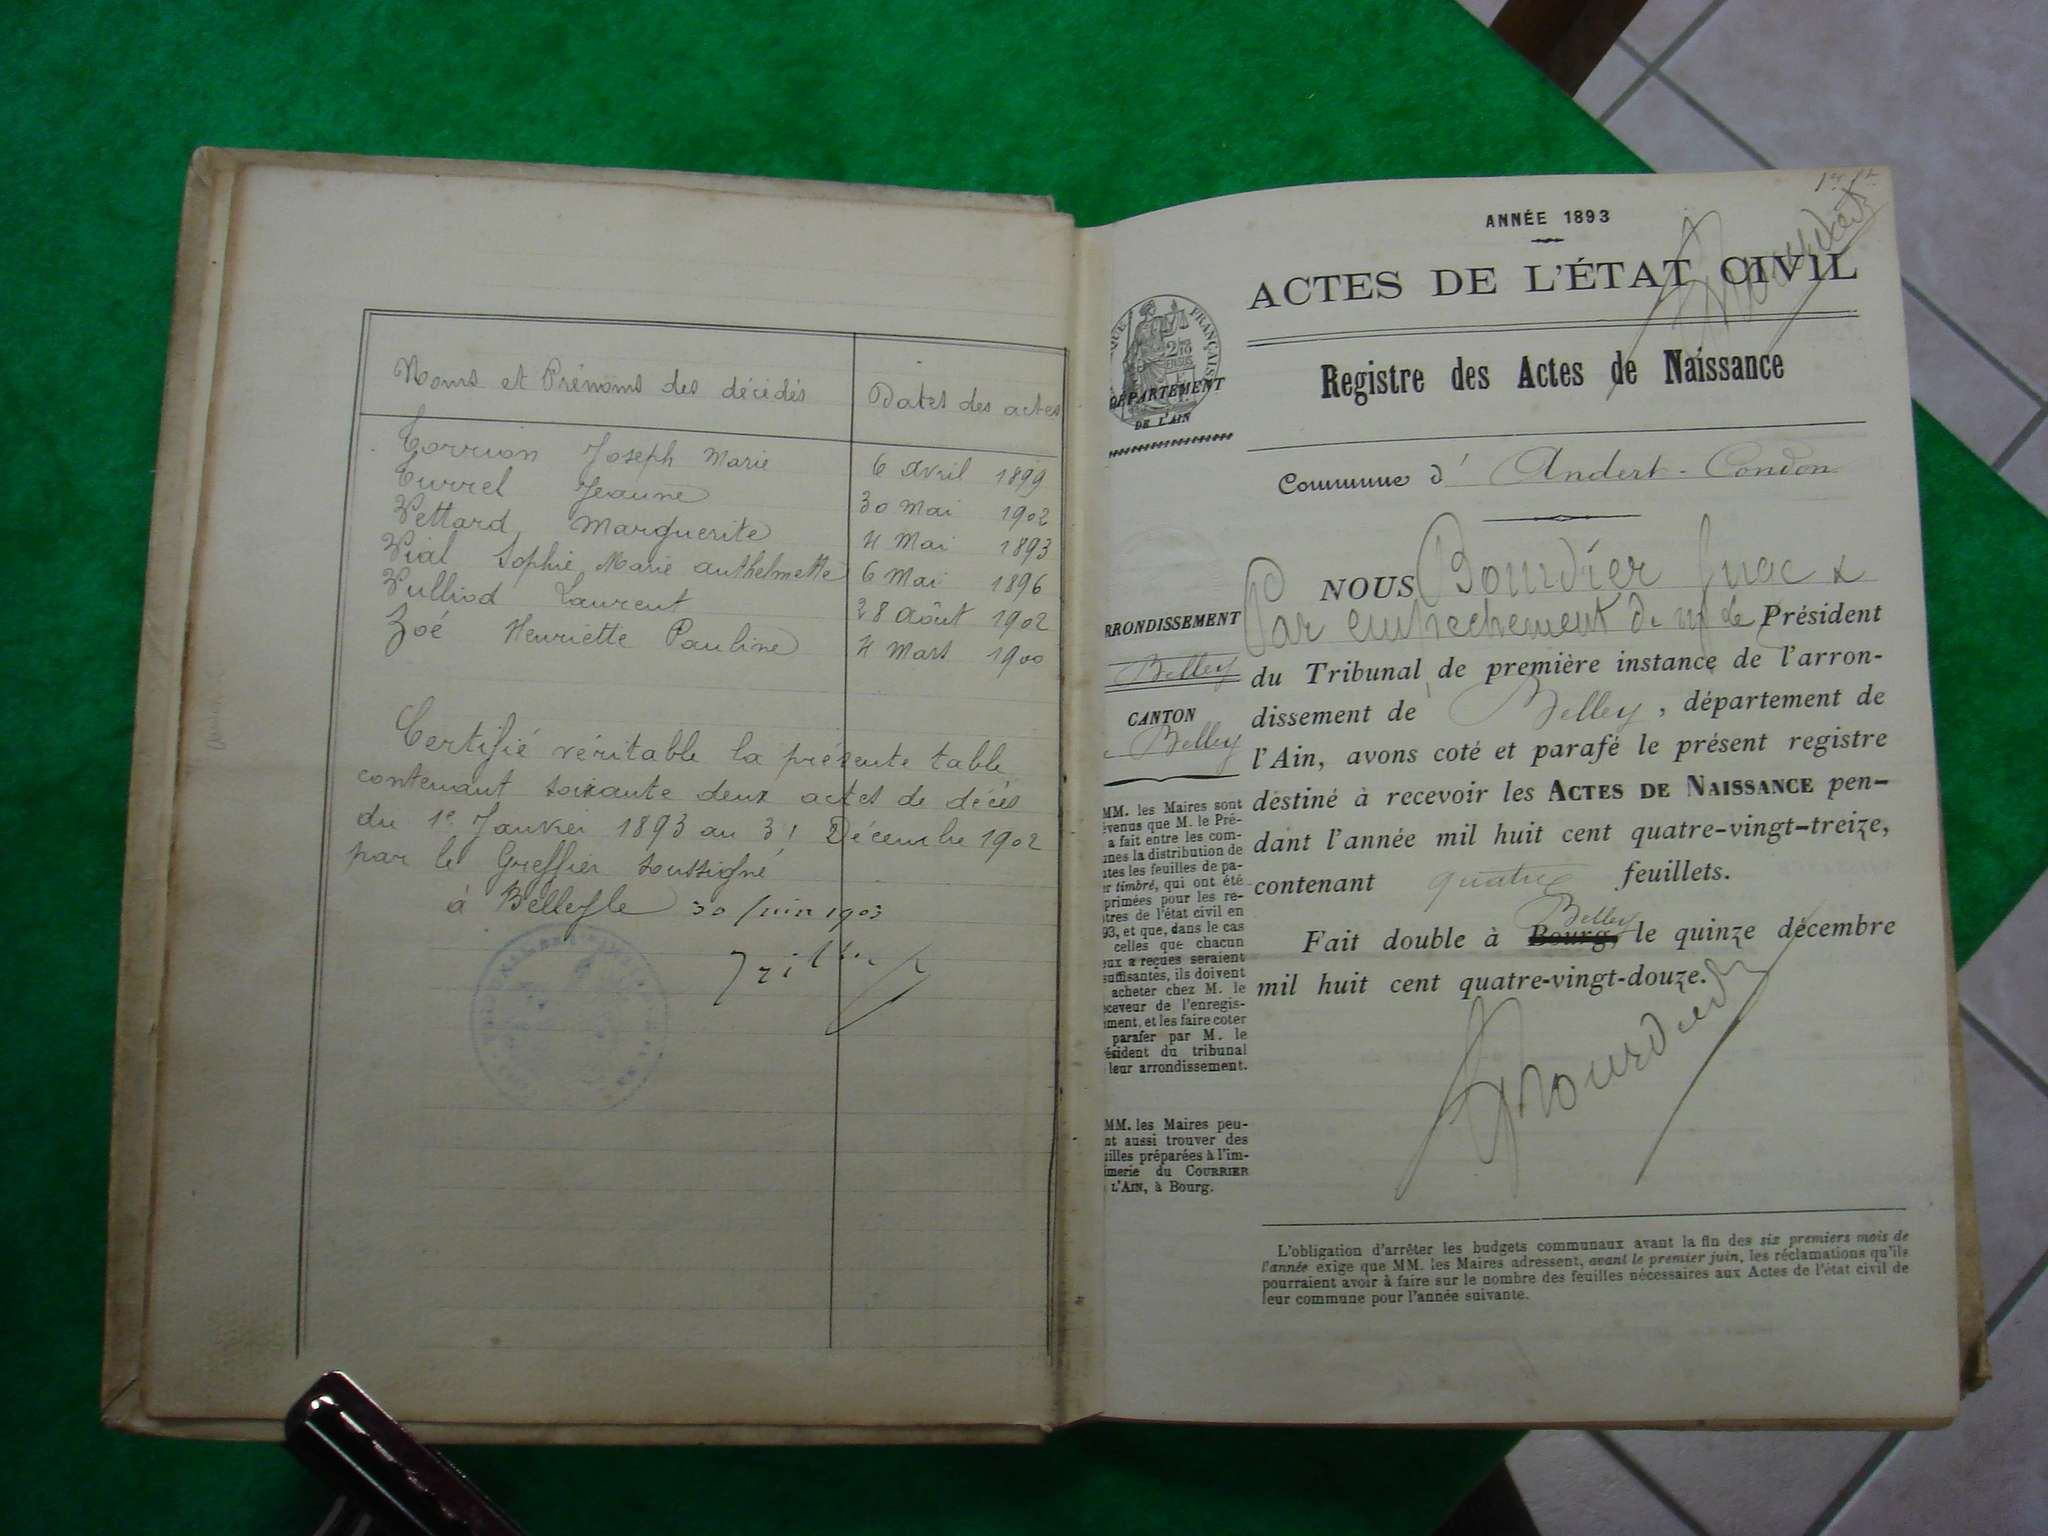 Noms et Prénoms des décédés
Dates des actes
Torrion Joseph Marie 6 Avril 1899
Turrel Jeanne 30 Mai 1902
Vettard Marguerite 4 Mai 1893
Vial Sophie Marie anthelmette 6 Mai 1896
Vulliod Laurent 28 Août 1902
Zoé Henriette Pauline 4 Mars 1900
Certifié véritable la présente table
contenant soixante deux actes de décès
du 1er Janvier 1893 au 31 Décembre 1902
par le Greffier soussigné
à Belley le 30 Juin 1903
ANNÉE 1893
ACTES DE L'ÉTAT CIVIL
Registre des Actes de Naissance
DÉPARTEMENT
DE L'AIN
Commune d' Andert-Condon
NOUS Bourdier Juge
Par empechement de M le Président
du Tribunal de première instance de l'arron-
dissement de Belley, département de
l'Ain, avons coté et parafé le présent registre
destiné à recevoir les ACTES DE NAISSANCE pen-
dant l'année mil huit cent quatre-vingt-treize,
contenant quatre feuillets.
Belley
Fait double à Bourg, le quinze décembre
mil huit cent quatre-vingt-douze.
RRONDISSEMENT
Belley
CANTON
Belley
MM. les Maires sont
évenus que M. le Pré-
a fait entre les com-
nes la distribution de
tes les feuilles de pa-
r timbré, qui ont été
primées pour les re-
tres de l'état civil en
93, et que, dans le cas
celles que chacun
eux a reçues seraient
suffisantes, ils doivent
acheter chez M. le
ceveur de l'enregis-
ment, et les faire coter
parafer par M. le
ésident du tribunal
leur arrondissement.
MM. les Maires peu-
nt aussi trouver des
illes préparées à l'im-
imerie du COURRIER
L'AIN, à Bourg.
L'obligation d'arrêter les budgets communaux avant la fin des six premiers mois de
l'année exige que MM. les Maires adressent, avant le premier juin, les réclamations qu'ils
pourraient avoir à faire sur le nombre des feuilles nécessaires aux Actes de l'état civil de
leur commune pour l'année suivante.